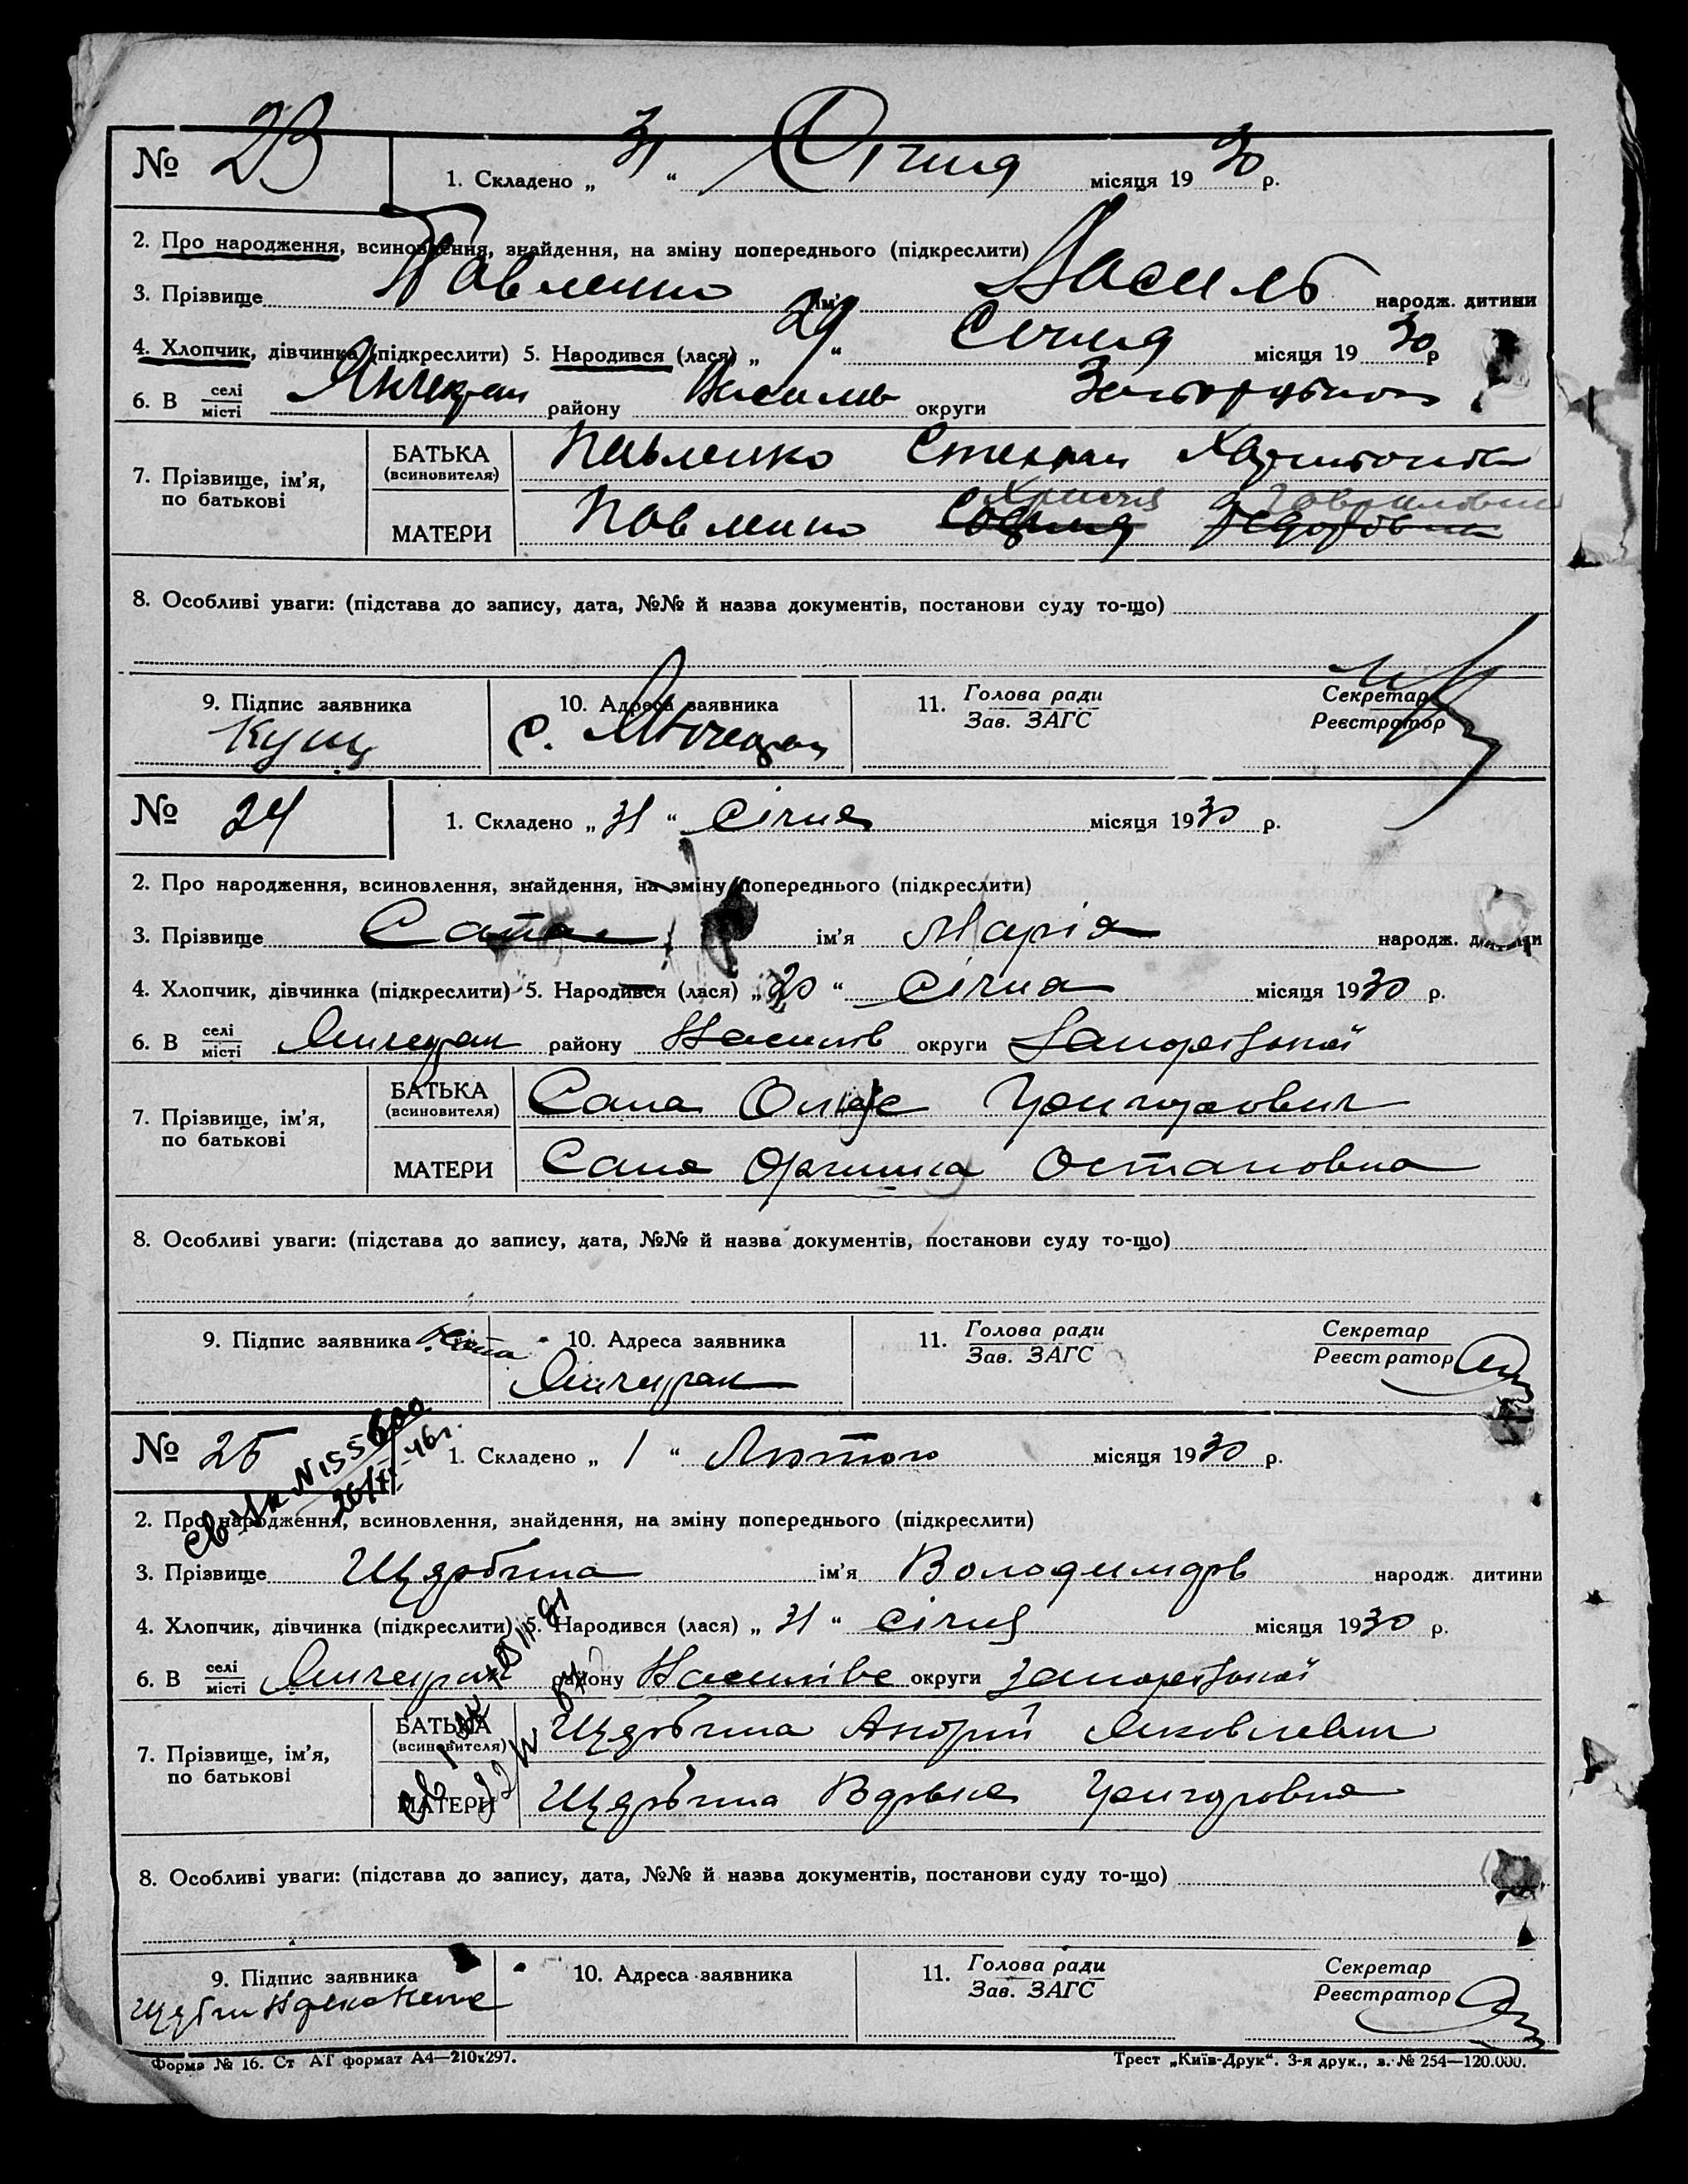 № 23 1. Складено „ 31 “ Січня місяця 19 30 р.
2. Про народження, всиновлення, знайдення, на зміну попереднього (підкреслити)
3. Прізвище Павленко ім'я Василь народж. дитини
4. Хлопчик, дівчинка (підкреслити) 5. Народився (лася) „ 29 “ Січня місяця 19 30 р
6. В селі місті Янчекрак району Василів округи
7. Прізвище, ім'я, по батькові
БАТЬКА (всиновителя) Павленко Степан
Христя Гавриловна
МАТЕРИ Павленко Софія Федоровна
8. Особливі уваги: (підстава до запису, дата, №№ й назва документів, постанови суду то-що)
9. Підпис заявника 10. Адреса заявника 11. Голова ради Зав. ЗАГС Секретар Реєстратор
Кущ с. Янчекрак
№ 24 1. Складено „ 31 “ січня місяця 19 30 р.
2. Про народження, всиновлення, знайдення, на зміну попереднього (підкреслити)
3. Прізвище Сапа ім'я Марія народж. дитини
4. Хлопчик, дівчинка (підкреслити) 5. Народився (лася) „ 30 “ січня місяця 19 30 р.
6. В селі місті Янчекрак району Василів округи Запорізької
7. Прізвище, ім'я, по батькові
БАТЬКА (всиновителя) Сапа Григорович
МАТЕРИ Сапа Оришка Остаповна
8. Особливі уваги: (підстава до запису, дата, №№ й назва документів, постанови суду то-що)
9. Підпис заявника 10. Адреса заявника 11. Голова ради Зав. ЗАГС Секретар Реєстратор
Янчекрак
№ 25 1. Складено „ 1 “ Лютого місяця 19 30 р.
2. Про народження, всиновлення, знайдення, на зміну попереднього (підкреслити)
3. Прізвище Щербина ім'я Володимирь народж. дитини
4. Хлопчик, дівчинка (підкреслити) 5. Народився (лася) „ 31 “ січня місяця 19 30 р.
6. В селі місті Янчекрак району Василівс округи Запорізької
7. Прізвище, ім'я, по батькові
БАТЬКА (всиновителя) Щербина Андрій Яковлевич
МАТЕРИ Щербина Григоровна
8. Особливі уваги: (підстава до запису, дата, №№ й назва документів, постанови суду то-що)
9. Підпис заявника 10. Адреса заявника 11. Голова ради Зав. ЗАГС Секретар Реєстратор
Форма № 16. Ст АТ формат А4—210х297. Трест „Київ-Друк“. 3-я друк., з. № 254—120.000.